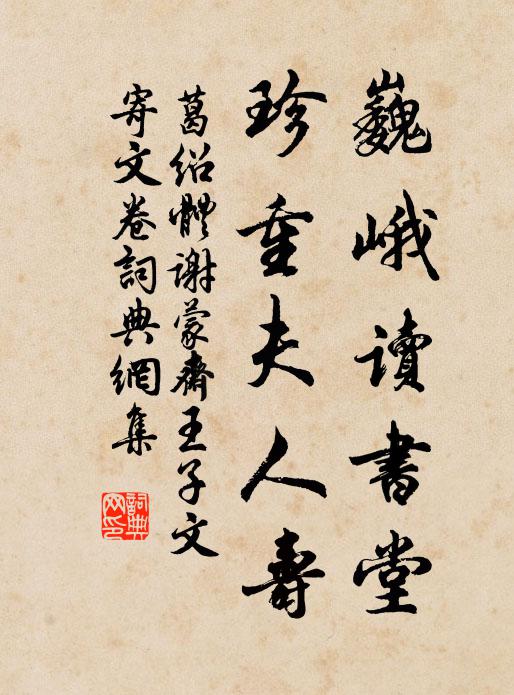 巍峨讀書堂
珍重夫人壽
葛紹體謝蒙齋王子文
寄文卷詞典網集
詞典網印